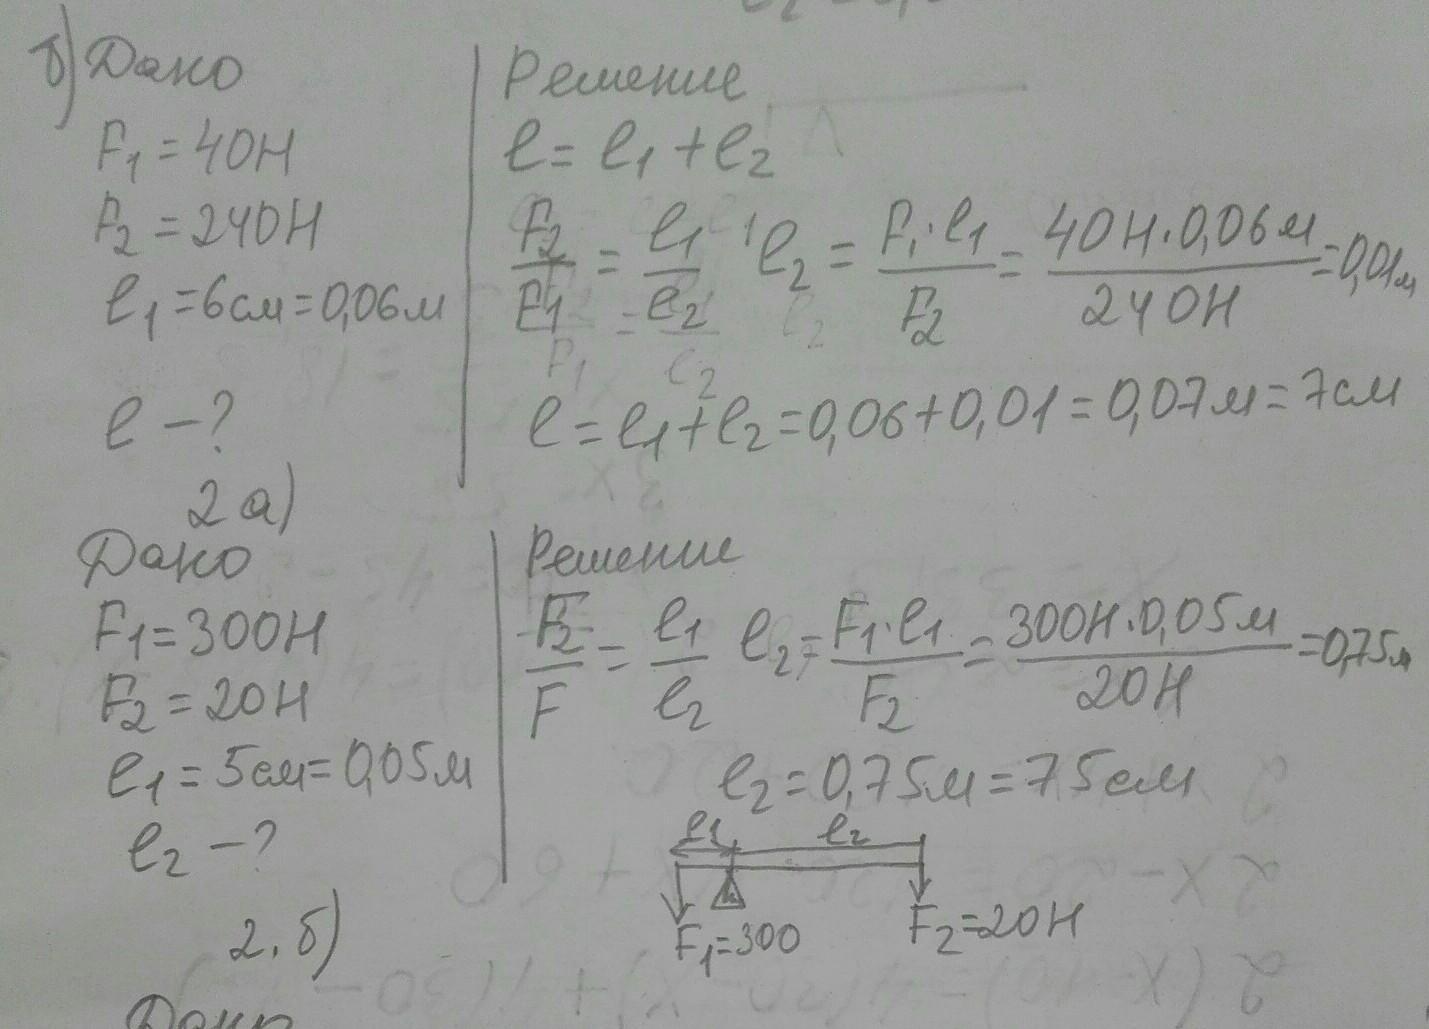 б) Дано
F1 = 40Н
F2 = 240Н
l1 = 6см = 0,06м
l – ?
Решение
l = l1 + l2
F2/F1 = l1/l2 l2 = F1·l1/F2 = 40Н·0,06м/240Н = 0,01м
l = l1 + l2 = 0,06 + 0,01 = 0,07м = 7см
2 а)
Дано
F1 = 300Н
F2 = 20Н
l1 = 5см = 0,05м
l2 – ?
Решение
F2/F = l1/l2 l2 = F1·l1/F2 = 300Н·0,05м/20Н = 0,75м
l2 = 0,75м = 75см
l1 l2
F1 = 300
F2 = 20Н
2. б)
Дано